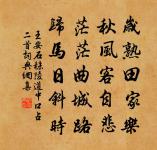 歲熟田家樂
秋風客自悲
茫茫曲城路
歸馬日斜時
王安石除陵道中口占
二首詞典網集